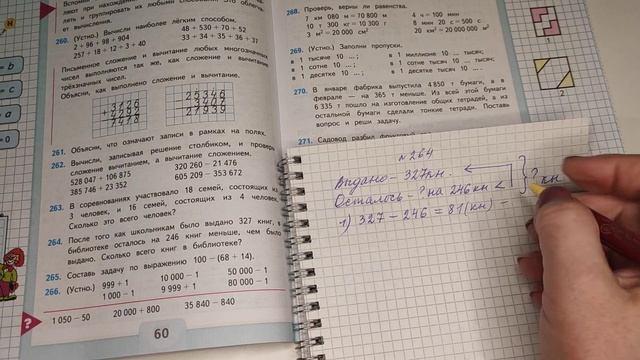 260. (Устно.) Вычисли наиболее лёгким способом.
2 + 96 + 98 + 904    48 + 530 + 70 + 52
257 + 18 + 12 + 3 + 40    33 + 34 + 35 + 36 + 37
Письменное сложение и вычитание любых многозначных
чисел выполняются так же, как сложение и вычитание
трёхзначных чисел.
Объясни, как выполнено сложение и вычитание.
261. Объясни, что означают записи в рамках на полях.
262. Вычисли, записывая решение столбиком, и проверь
сложение вычитанием, а вычитание сложением.
528 047 + 106 875    320 260 − 21 476
385 746 + 23 352    605 209 − 353 672
263. В соревнованиях участвовало 18 семей, состоящих из
3 человек, и 16 семей, состоящих из 4 человек.
Сколько это всего человек?
264. После того как школьникам было выдано 327 книг, в
библиотеке осталось на 246 книг меньше, чем было
выдано. Сколько всего книг в библиотеке?
265. Составь задачу по выражению 100 − (68 + 14).
266. (Устно.) 999 + 1    10 000 − 1    50 000 − 1
1 000 − 1    9 999 + 1    80 000 − 1
1 050 − 50    20 000 + 800    35 840 − 840
?
60
268. Проверь, верны ли равенства.
7 км 080 м = 70 800 м    4 ч = 100 мин
10 т 300 кг = 10 300 г    8 мин 20 с = 500 с
3 м² = 20 000 см²    20 км² = 20 000 000 м²
269. (Устно.) Заполни пропуски.
в 1 тысяче 10 ... ;    в 1 миллионе 10 ... тысяч;
в 1 сотне 10 ... ;    в 1 сотне тысяч 10 ... тысяч;
в 1 десятке 10 ... ;    в 1 десятке тысяч 10 ... тысяч.
270. В январе фабрика выпустила 4 850 т бумаги, а в
феврале — на 365 т меньше. Из всей этой бумаги
6 335 т пошло на изготовление общих тетрадей, а из
остальной бумаги сделали тонкие тетради. Поставь
вопрос и реши задачу.
271. Садовод разбил
2
№ 264
Выдано – 327 кн.
Осталось – ? на 246 кн
? кн
1) 327 – 246 = 81 (кн) –